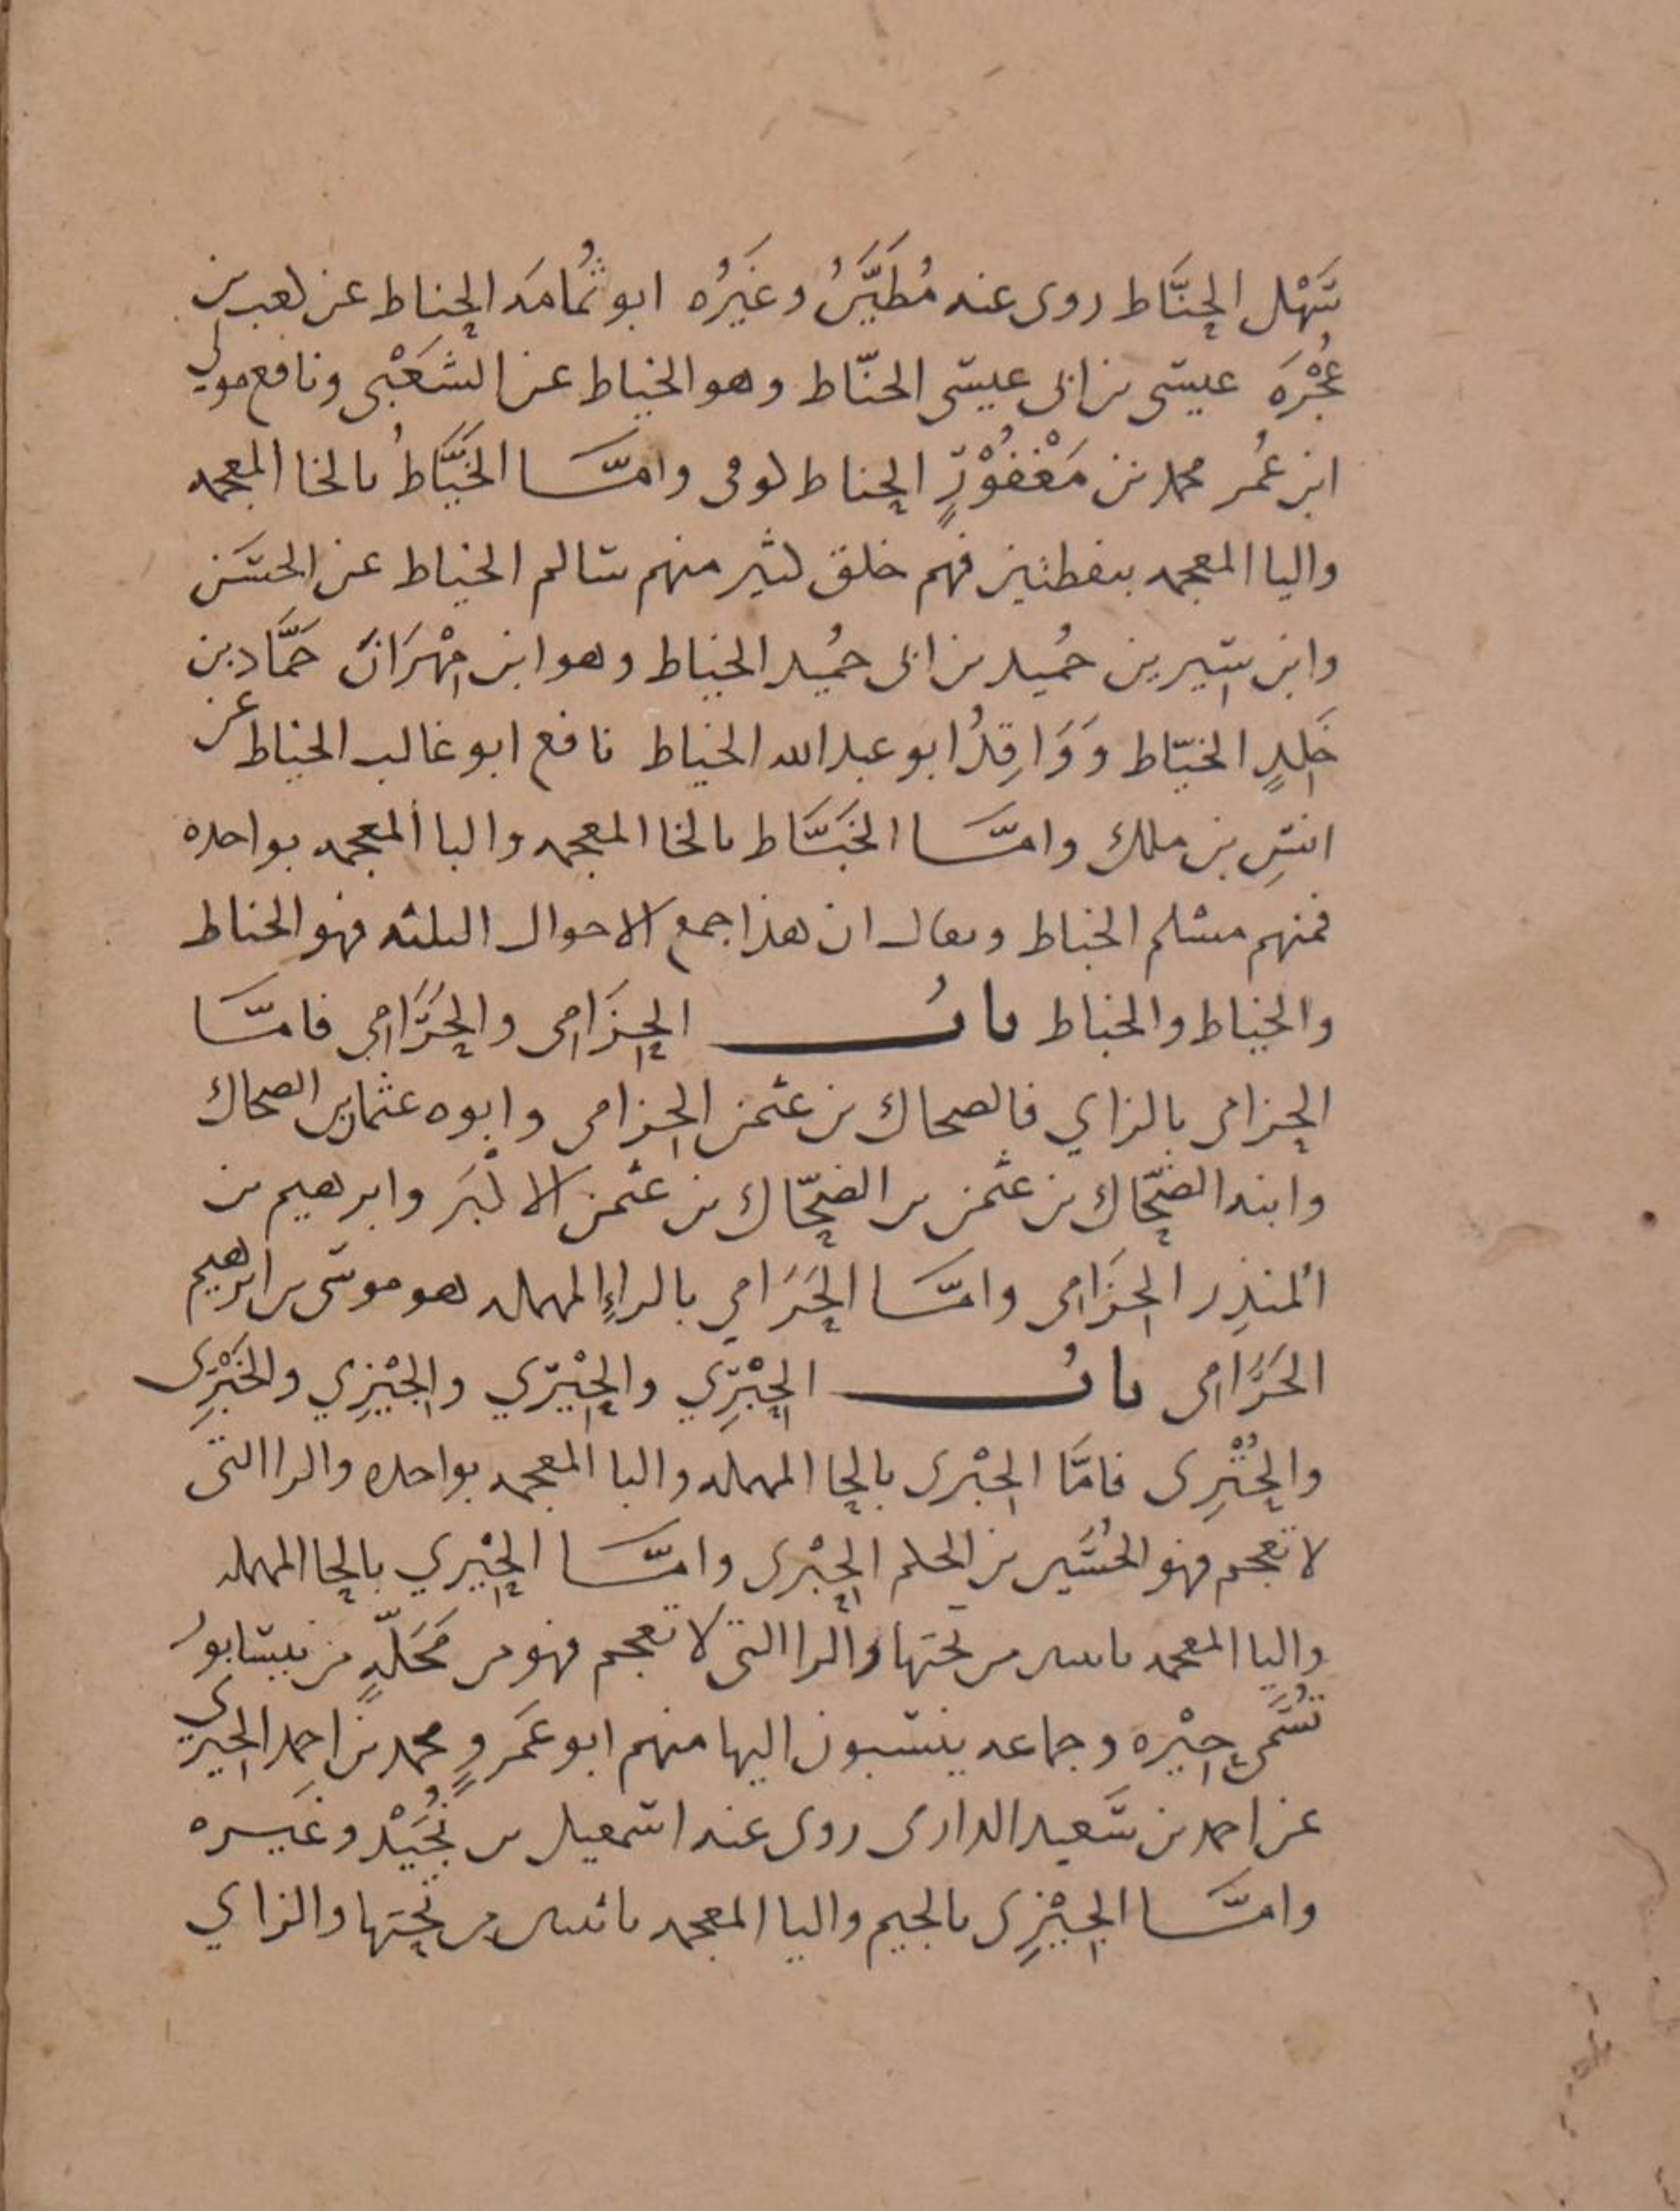 سَهْل الحنَّاط روى عنه مُطَيَّنُ وغيَرُه ابو ثُمامَه الحناط عن كعب بن
عُجْرَه عيسى بن ابى عيسى الحنّاط وهو الخياط عن الشَعْبى ونافع مولى
ابن عُمر محمد بن مَغْفُوْرٍ الحناط كوفى وامَّا الخيَّاطُ بالخا المعجمه
واليا المعجمه بنقطتين فهم خلق كثير منهم سالم الخياط عن الحسَن
وابن سيرين حُميد بن ابى حُميد الخياط وهو ابن مِهْرَانَ حَمَّاد بن
خَلِدٍ الخيّاط وَوَاقِدُ ابو عبد الله الخياط نافع ابو غالب الخياط عن
انسِ بن ملك وامَّا الخبَّاط بالخا المعجمه والبا المعجمه بواحده
فمنهم مسلم الخباط ويقال ان هذا جمع الاحوال الثلثه فهو الحناط
والخياط والخباط بابُ الحِزَامِى والحَرَامِي فامَّا
الحزامى بالزاي فالضحاك بن عثمن الحِزامى وابوه عثمان بن الضحاك
وابنه الضحّاك بن عثمن بن الضحّاك بن عثمن الاكْبَر وابرهيم بن
المنذِر الحِزَامِى وامَّا الحَرَامِي بالراءِ المهمله هو موسى بن ابرهيم
الحَرَامِى بابُ الحِبْرِي والحِيْرِي والجِيْزِي والخَبْرِى
والحُتْرِى فامَّا الحِبْرى بالحا المهمله والبا المعجمه بواحده والرا التى
لا تعجم فهو الحُسَين بن الحكم الحِبْرى وامَّا الحِيْرِي بالحا المهمله
واليا المعجمه باثنتين من تحتها والرا التى لا تعجم فهو من مَحَلّهٍ من نيسابورُ
تُسَمى حِيْره وجماعه ينتسبون اليها منهم ابو عَمرٍو محمد بن احمد الحِيْرى
عن احمد بن سَعيد الدارى روى عنه اسمعيل بن نُجَيْد وغيَره
وامَّا الجِيْزِى بالجيم واليا المعجمه باثنتين من تحتها والزاي